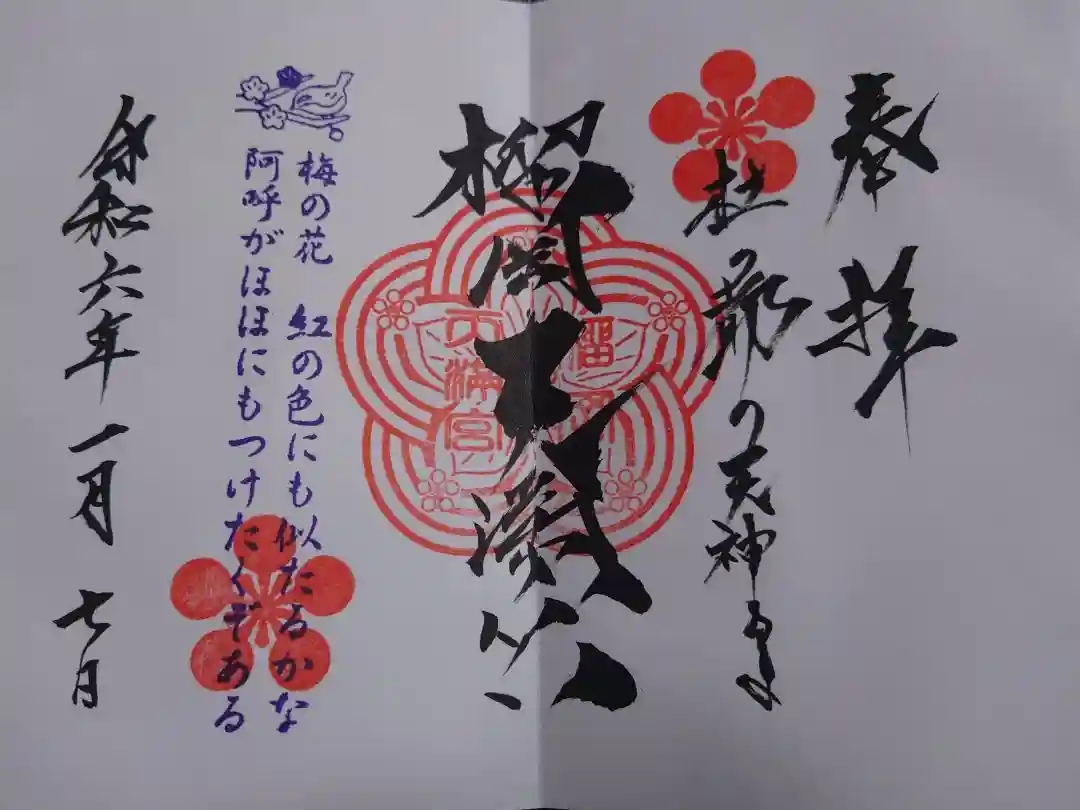 奉拝
杜の都の天神さま
榴岡天満宮
榴岡
天満宮
梅の花　紅の色にも似たるかな
阿呼がほほにもつけたくぞある
令和六年 一月 七日